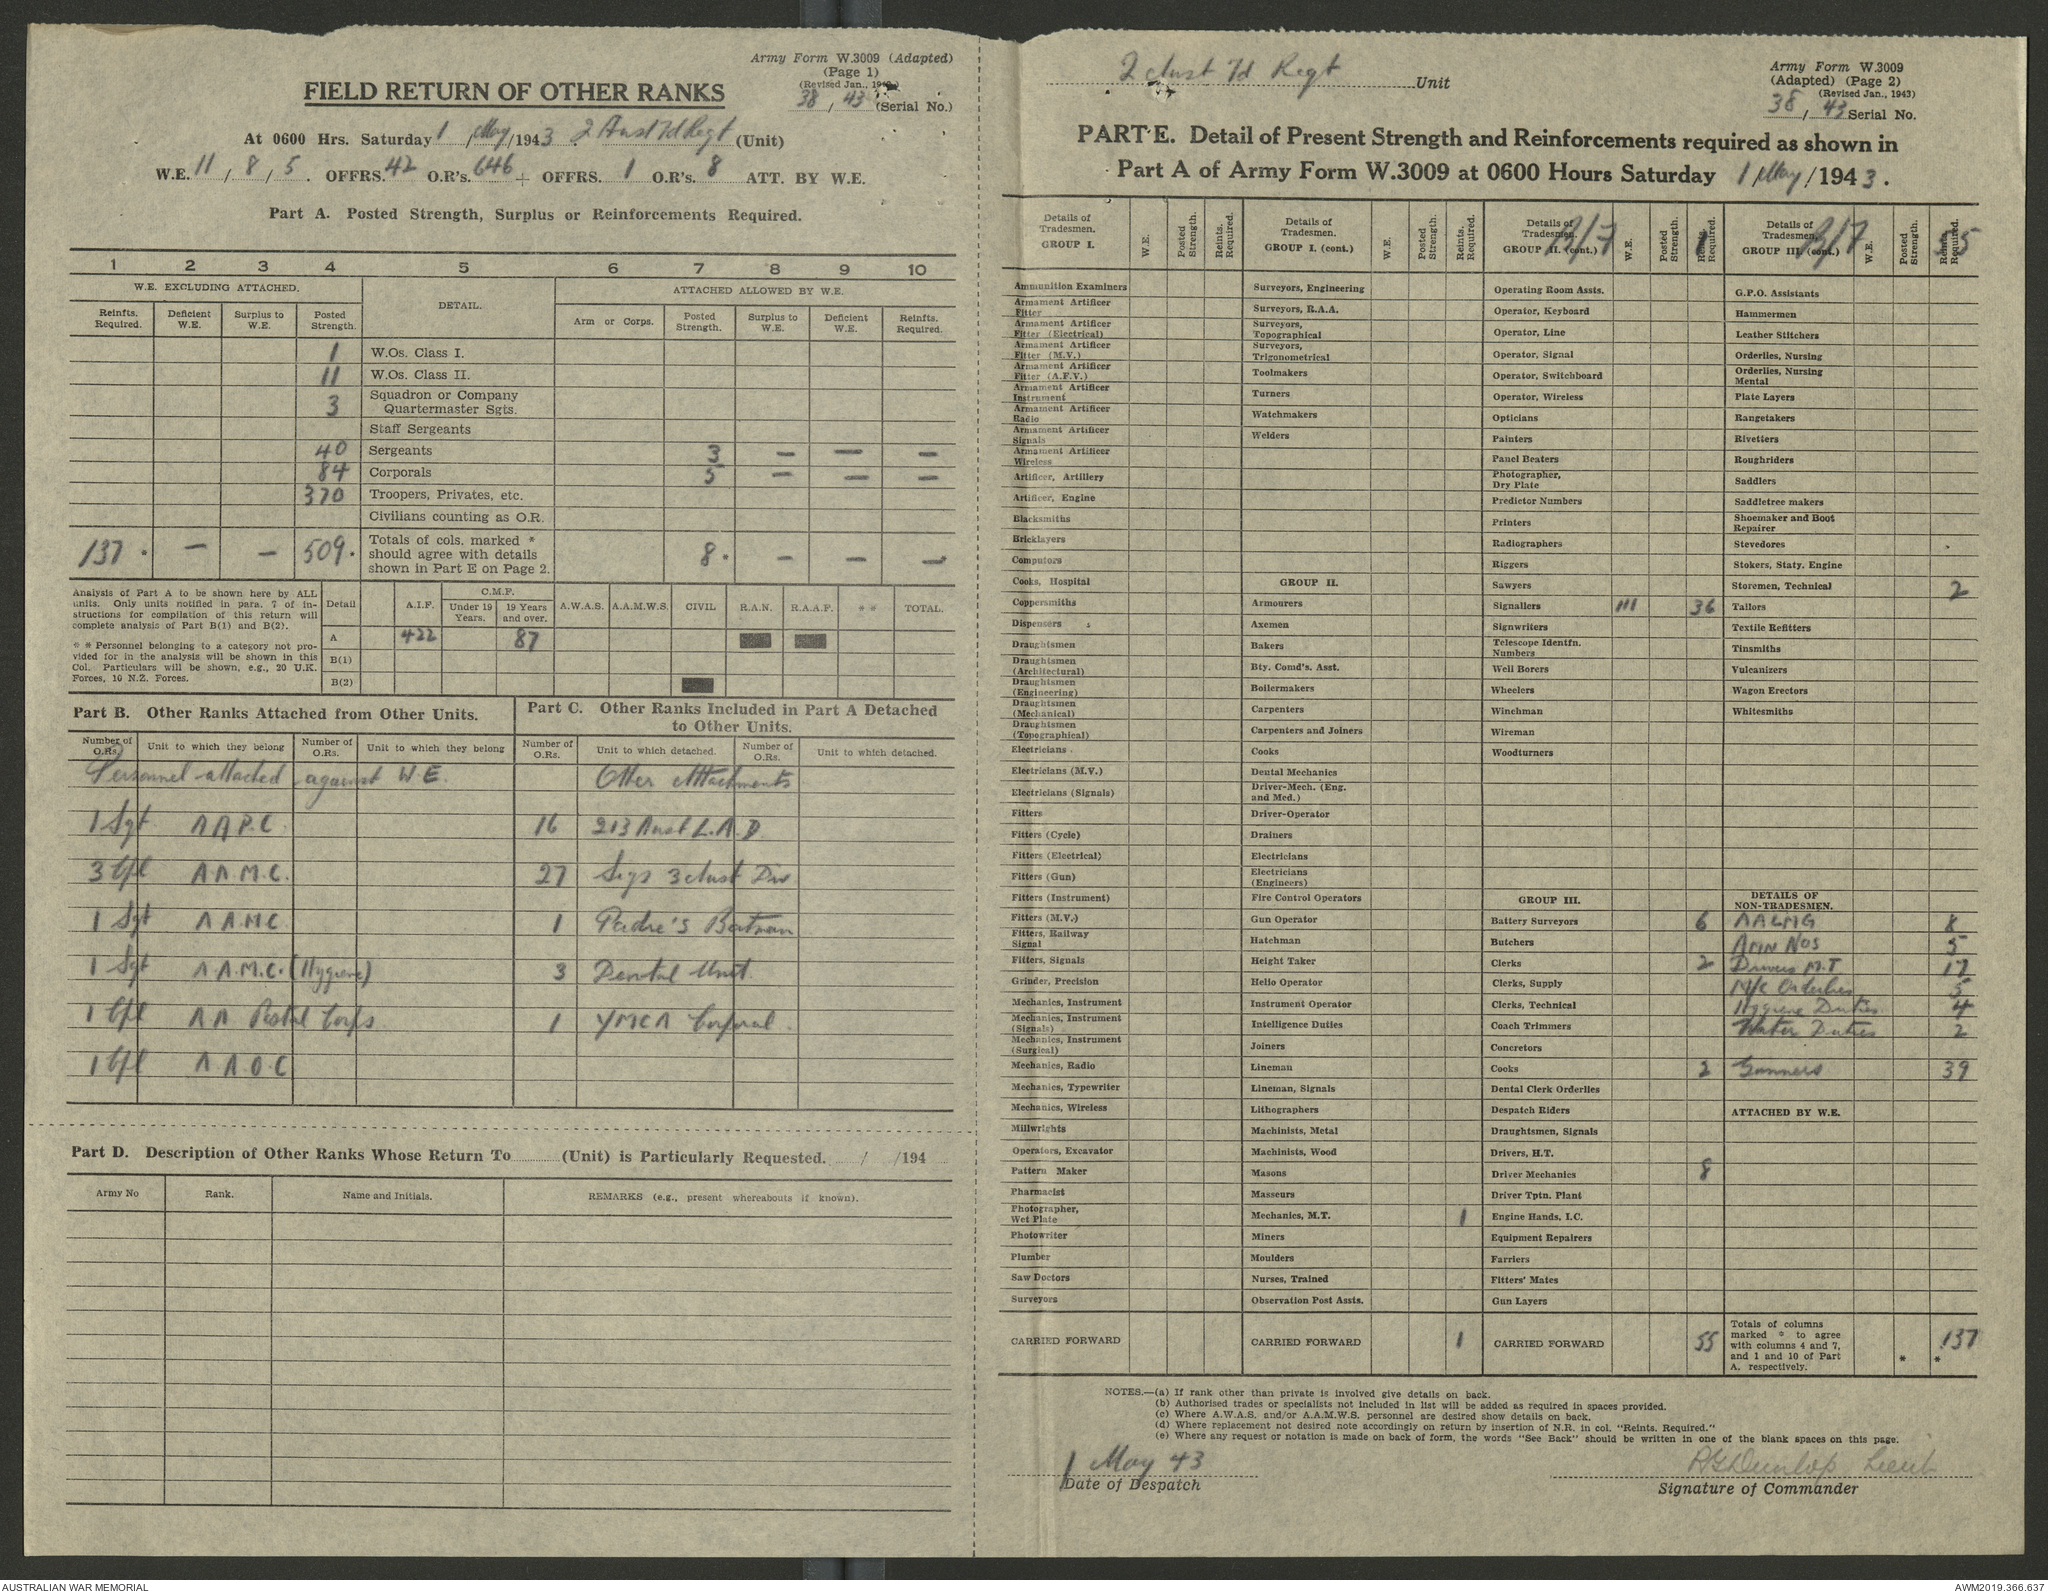 Army Form W.3009 (Adapted)
(Page 1)
(Revised Jan., 1943)
38 / 43 (Serial No.)
FIELD RETURN OF OTHER RANKS
At 0600 Hrs. Saturday 1 / May / 1943. 2 Aust Fd Regt (Unit)
W.E. 11 / 8 / 5. OFFRS. 42 O.R's. 646 + OFFRS. 1 O.R's. 8 ATT. BY W.E.
Part A. Posted Strength, Surplus or Reinforcements Required.
1 2 3 4 5 6 7 8 9 10
W.E. EXCLUDING ATTACHED. DETAIL. ATTACHED ALLOWED BY W.E.
Reinfts. Required. Deficient W.E. Surplus to W.E. Posted Strength. Arm or Corps. Posted Strength. Surplus to W.E. Deficient W.E. Reinfts. Required.
1 W.Os. Class I.
11 W.Os. Class II.
3 Squadron or Company Quartermaster Sgts.
Staff Sergeants
40 Sergeants 3 – – –
84 Corporals 5 – – –
370 Troopers, Privates, etc.
Civilians counting as O.R.
137 . – – 509 . Totals of cols. marked * should agree with details shown in Part E on Page 2. 8 * – – – *
Analysis of Part A to be shown here by ALL
units. Only units notified in para. 7 of in-
structions for compilation of this return will
complete analysis of Part B(1) and B(2).
* * Personnel belonging to a category not pro-
vided for in the analysis will be shown in this
Col. Particulars will be shown, e.g., 20 U.K.
Forces, 10 N.Z. Forces.
Detail A.I.F. C.M.F. Under 19 Years. 19 Years and over. A.W.A.S. A.A.M.W.S. CIVIL R.A.N. R.A.A.F. * * TOTAL.
A 422 87
B(1)
B(2)
Part B. Other Ranks Attached from Other Units.
Number of O.Rs. Unit to which they belong Number of O.Rs. Unit to which they belong
Personnel attached against W.E.
1 Sgt A A P.C.
3 Cpl A A.M.C.
1 Sgt A A.M.C
1 Sgt A A.M.C. (Hygiene)
1 Cpl A A Postal Corps
1 Cpl A A O C
Part C. Other Ranks Included in Part A Detached
to Other Units.
Number of O.Rs. Unit to which detached. Number of O.Rs. Unit to which detached.
Other Attachments
16 213 Aust L.A.D.
27 Sigs 3 Aust Div.
1 Padre's Batman
3 Dental Unit.
1 YMCA Corporal.
Part D. Description of Other Ranks Whose Return To ........ (Unit) is Particularly Requested. ...... / /194
Army No Rank. Name and Initials. REMARKS (e.g., present whereabouts if known).
2 Aust Fd Regt Unit
Army Form W.3009
(Adapted) (Page 2)
(Revised Jan., 1943)
38 / 43 Serial No.
PART E. Detail of Present Strength and Reinforcements required as shown in
Part A of Army Form W.3009 at 0600 Hours Saturday 1 / May / 1943.
Details of Tradesmen. GROUP I. W.E. Posted Strength. Reints. Required.
Ammunition Examiners
Armament Artificer Fitter
Armament Artificer Fitter (Electrical)
Armament Artificer Fitter (M.V.)
Armament Artificer Fitter (A.F.V.)
Armament Artificer Instrument
Armament Artificer Radio
Armament Artificer Signals
Armament Artificer Wireless
Artificer, Artillery
Artificer, Engine
Blacksmiths
Bricklayers
Computors
Cooks, Hospital
Coppersmiths
Dispensers
Draughtsmen
Draughtsmen (Architectural)
Draughtsmen (Engineering)
Draughtsmen (Mechanical)
Draughtsmen (Topographical)
Electricians
Electricians (M.V.)
Electricians (Signals)
Fitters
Fitters (Cycle)
Fitters (Electrical)
Fitters (Gun)
Fitters (Instrument)
Fitters (M.V.)
Fitters, Railway Signal
Fitters, Signals
Grinder, Precision
Mechanics, Instrument
Mechanics, Instrument (Signals)
Mechanics, Instrument (Surgical)
Mechanics, Radio
Mechanics, Typewriter
Mechanics, Wireless
Millwrights
Operators, Excavator
Pattern Maker
Pharmacist
Photographer, Wet Plate
Photowriter
Plumber
Saw Doctors
Surveyors
CARRIED FORWARD
Details of Tradesmen. GROUP I. (cont.) W.E. Posted Strength. Reints. Required.
Surveyors, Engineering
Surveyors, R.A.A.
Surveyors, Topographical
Surveyors, Trigonometrical
Toolmakers
Turners
Watchmakers
Welders
GROUP II.
Armourers
Axemen
Bakers
Bty. Comd's. Asst.
Boilermakers
Carpenters
Carpenters and Joiners
Cooks
Dental Mechanics
Driver-Mech. (Eng. and Med.)
Driver-Operator
Drainers
Electricians
Electricians (Engineers)
Fire Control Operators
Gun Operator
Hatchman
Height Taker
Helio Operator
Instrument Operator
Intelligence Duties
Joiners
Lineman
Lineman, Signals
Lithographers
Machinists, Metal
Machinists, Wood
Masons
Masseurs
Mechanics, M.T. 1
Miners
Moulders
Nurses, Trained
Observation Post Assts.
CARRIED FORWARD 1
Details of Tradesmen. GROUP II. (cont.) B/F W.E. Posted Strength. Reints. Required. 1
Operating Room Assts.
Operator, Keyboard
Operator, Line
Operator, Signal
Operator, Switchboard
Operator, Wireless
Opticians
Painters
Panel Beaters
Photographer, Dry Plate
Predictor Numbers
Printers
Radiographers
Riggers
Sawyers
Signallers 111 36
Signwriters
Telescope Identfn. Numbers
Well Borers
Wheelers
Winchman
Wireman
Woodturners
GROUP III.
Battery Surveyors 6
Butchers
Clerks 2
Clerks, Supply
Clerks, Technical
Coach Trimmers
Concretors
Cooks 2
Dental Clerk Orderlies
Despatch Riders
Draughtsmen, Signals
Drivers, H.T.
Driver Mechanics 8
Driver Tptn. Plant
Engine Hands, I.C.
Equipment Repairers
Farriers
Fitters' Mates
Gun Layers
CARRIED FORWARD 55
Details of Tradesmen. GROUP III. (cont.) B/F W.E. Posted Strength. Reints. Required. 55
G.P.O. Assistants
Hammermen
Leather Stitchers
Orderlies, Nursing
Orderlies, Nursing Mental
Plate Layers
Rangetakers
Rivetters
Roughriders
Saddlers
Saddletree makers
Shoemaker and Boot Repairer
Stevedores
Stokers, Staty. Engine
Storemen, Technical 2
Tailors
Textile Refitters
Tinsmiths
Vulcanizers
Wagon Erectors
Whitesmiths
DETAILS OF NON-TRADESMEN.
AALMG 8
Amn Nos 5
Drivers M.T 17
M/C Orderlies 5
Hygiene Duties 4
Water Duties 2
Gunners 39
ATTACHED BY W.E.
Totals of columns marked * to agree with columns 4 and 7, and 1 and 10 of Part A, respectively. * * 137
NOTES.—(a) If rank other than private is involved give details on back.
(b) Authorised trades or specialists not included in list will be added as required in spaces provided.
(c) Where A.W.A.S. and/or A.A.M.W.S. personnel are desired show details on back.
(d) Where replacement not desired note accordingly on return by insertion of N.R. in col. "Reints. Required."
(e) Where any request or notation is made on back of form, the words "See Back" should be written in one of the blank spaces on this page.
1 May 43
Date of Despatch
RGDunlop Lieut
Signature of Commander
AUSTRALIAN WAR MEMORIAL
AWM2019.366.637